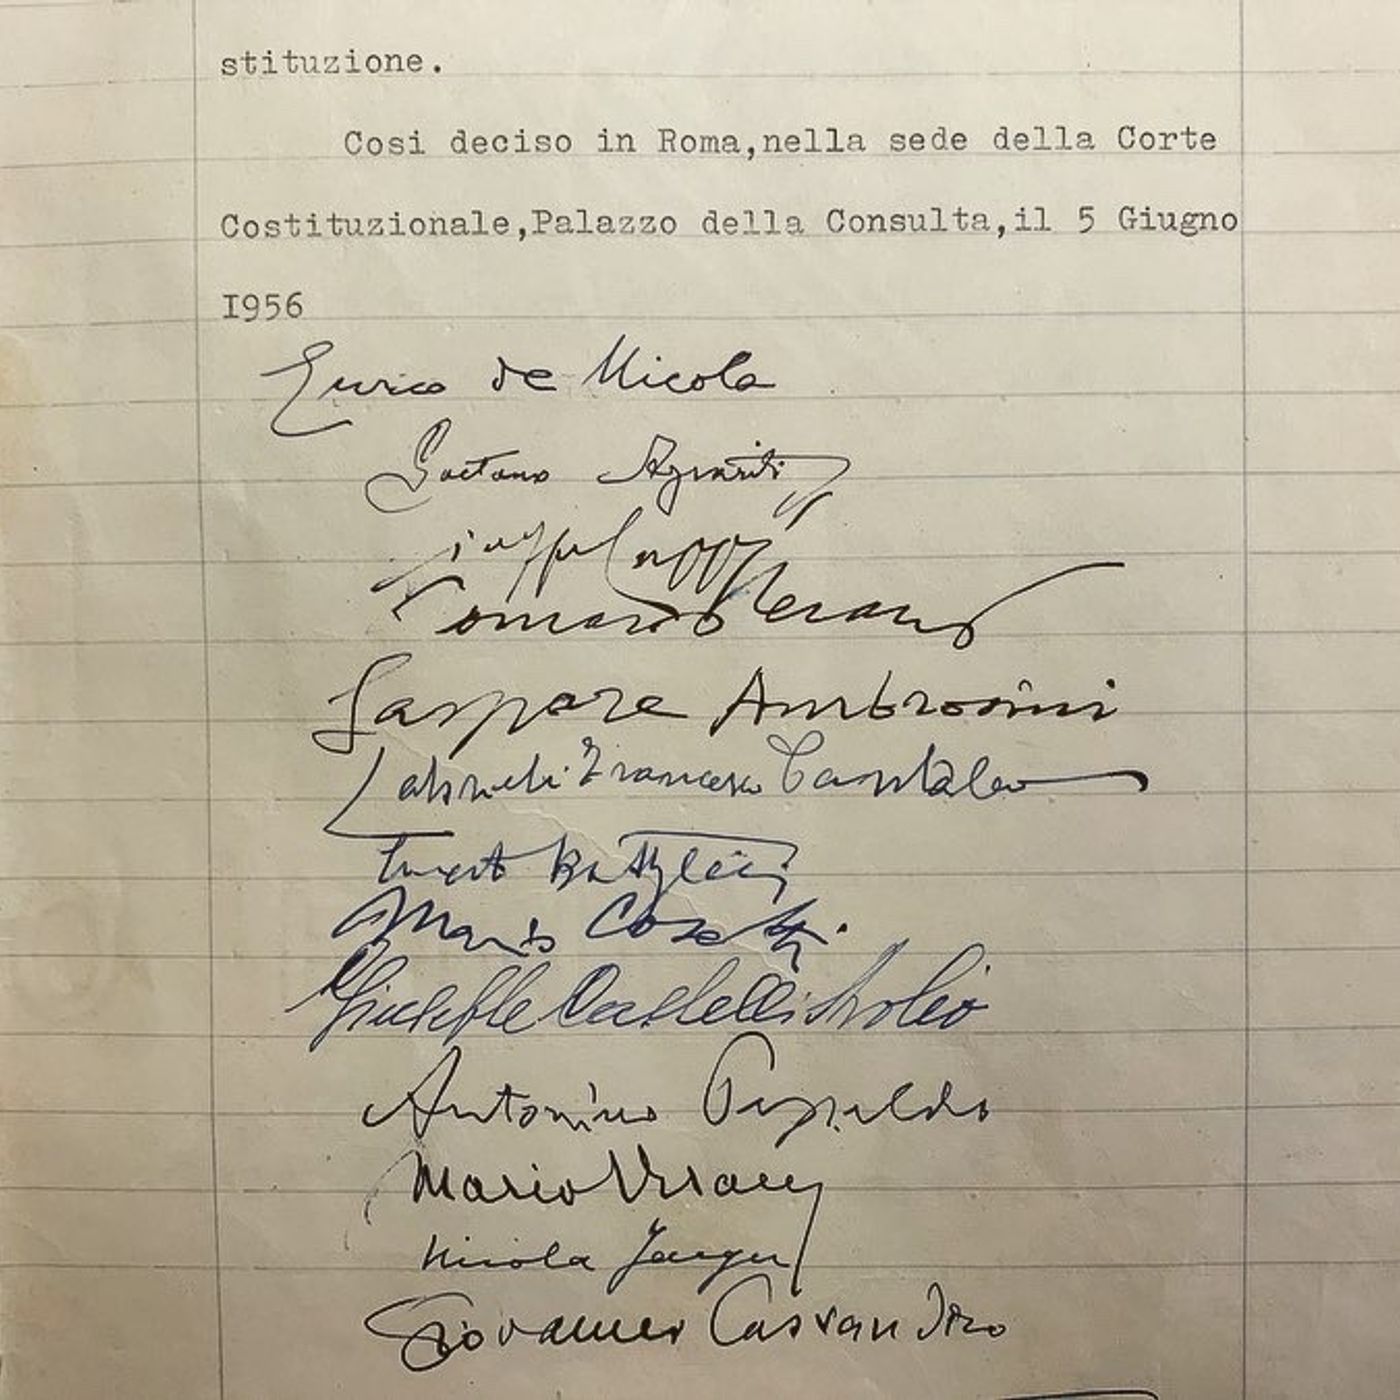 stituzione.
Cosi deciso in Roma,nella sede della Corte
Costituzionale,Palazzo della Consulta,il 5 Giugno
I956
Enrico de Nicola
Gaetano Azzariti
Giuseppe Cappi
Tomaso Perassi
Gaspare Ambrosini
Gabrieli Francesco Pantaleo
Ernesto Battaglini
Mario Cosatti
Giuseppe Castelli Avolio
Antonino Papaldo
Mario Bracci
Nicola Jaeger
Giovanni Cassandro